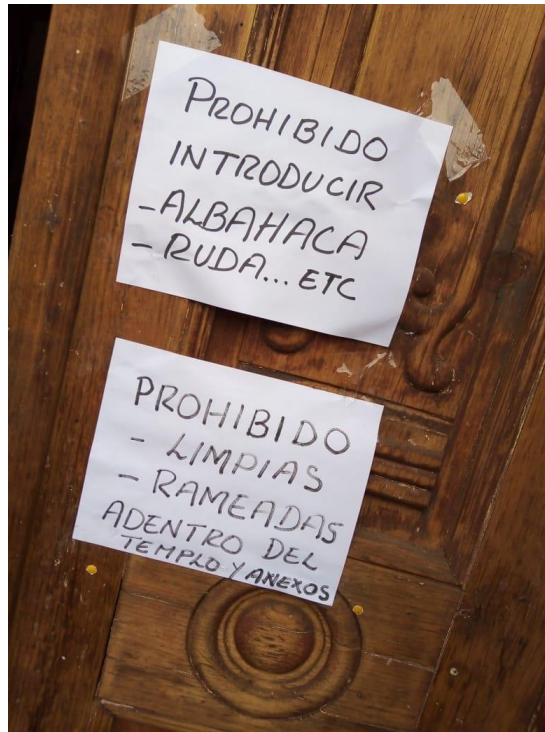 PROHIBIDO
INTRODUCIR
-ALBAHACA
- RUDA... ETC
PROHIBIDO
- LIMPIAS
- RAMEADAS
ADENTRO DEL
TEMPLO Y ANEXOS